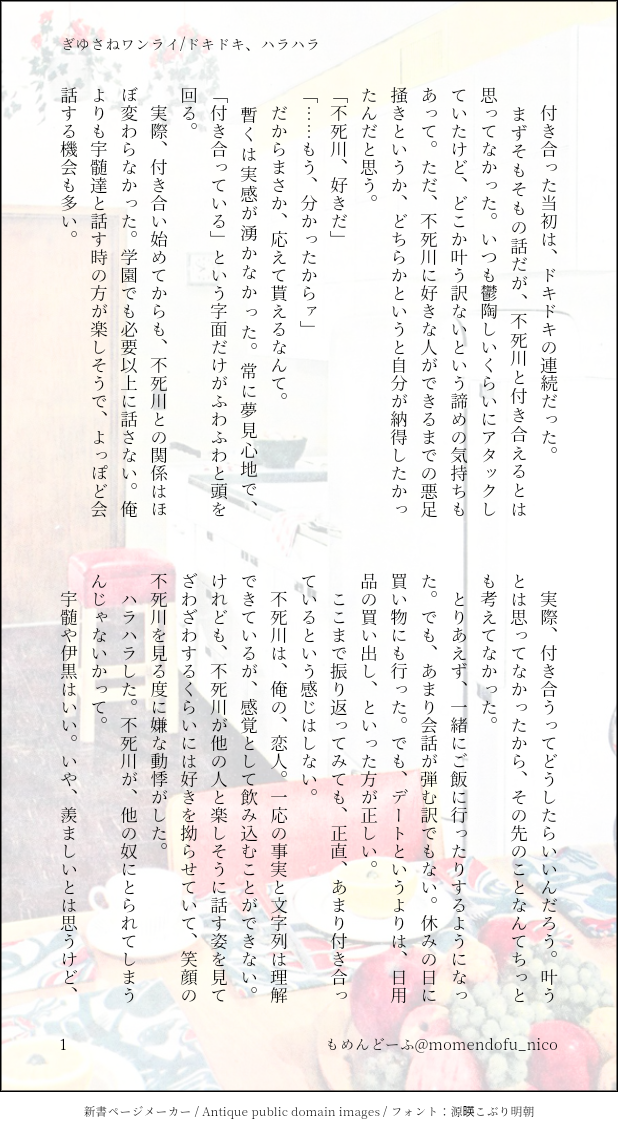 ぎゆさねワンライ/ドキドキ、ハラハラ
付き合った当初は、ドキドキの連続だった。
まずそもそもの話だが、不死川と付き合えるとは
思ってなかった。いつも鬱陶しいくらいにアタックし
ていたけど、どこか叶う訳ないという諦めの気持ちも
あって。ただ、不死川に好きな人ができるまでの悪足
掻きというか、どちらかというと自分が納得したかっ
たんだと思う。
「不死川、好きだ」
「……もう、分かったからァ」
だからまさか、応えて貰えるなんて。
暫くは実感が湧かなかった。常に夢見心地で、
「付き合っている」という字面だけがふわふわと頭を
回る。
実際、付き合い始めてからも、不死川との関係はほ
ぼ変わらなかった。学園でも必要以上に話さない。俺
よりも宇髄達と話す時の方が楽しそうで、よっぽど会
話する機会も多い。
実際、付き合うってどうしたらいいんだろう。叶う
とは思ってなかったから、その先のことなんてちっと
も考えてなかった。
とりあえず、一緒にご飯に行ったりするようになっ
た。でも、あまり会話が弾む訳でもない。休みの日に
買い物にも行った。でも、デートというよりは、日用
品の買い出し、といった方が正しい。
ここまで振り返ってみても、正直、あまり付き合っ
ているという感じはしない。
不死川は、俺の、恋人。一応の事実と文字列は理解
できているが、感覚として飲み込むことができない。
けれども、不死川が他の人と楽しそうに話す姿を見て
ざわざわするくらいには好きを拗らせていて、笑顔の
不死川を見る度に嫌な動悸がした。
ハラハラした。不死川が、他の奴にとられてしまう
んじゃないかって。
宇髄や伊黒はいい。いや、羨ましいとは思うけど、
1
もめんどーふ@momendofu_nico
新書ページメーカー / Antique public domain images / フォント：源暎こぶり明朝